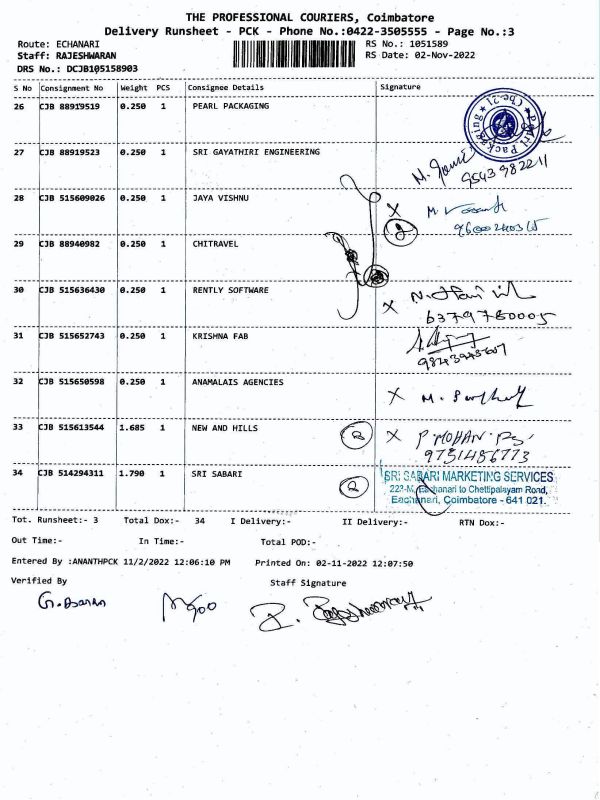 THE PROFESSIONAL COURIERS, Coimbatore
Delivery Runsheet - PCK - Phone No.:0422-3505555 - Page No.:3
Route: ECHANARI RS No.: 1051589
Staff: RAJESHWARAN RS Date: 02-Nov-2022
DRS No.: DCJB105158903
S No Consignment No Weight PCS Consignee Details Signature
26 CJB 88919519 0.250 1 PEARL PACKAGING
27 CJB 88919523 0.250 1 SRI GAYATHIRI ENGINEERING
9543982211
28 CJB 515609026 0.250 1 JAYA VISHNU
29 CJB 88940982 0.250 1 CHITRAVEL
30 CJB 515636430 0.250 1 RENTLY SOFTWARE
6379780005
31 CJB 515652743 0.250 1 KRISHNA FAB
32 CJB 515650598 0.250 1 ANAMALAIS AGENCIES
33 CJB 515613544 1.685 1 NEW AND HILLS P.MOHAN
9751486773
34 CJB 514294311 1.790 1 SRI SABARI SRI SABARI MARKETING SERVICES
223-M, Eachanari to Chettipalayam Road,
Eachanari, Coimbatore - 641 021.
Tot. Runsheet:- 3 Total Dox:- 34 I Delivery:- II Delivery:- RTN Dox:-
Out Time:- In Time:- Total POD:-
Entered By :ANANTHPCK 11/2/2022 12:06:10 PM Printed On: 02-11-2022 12:07:50
Verified By Staff Signature